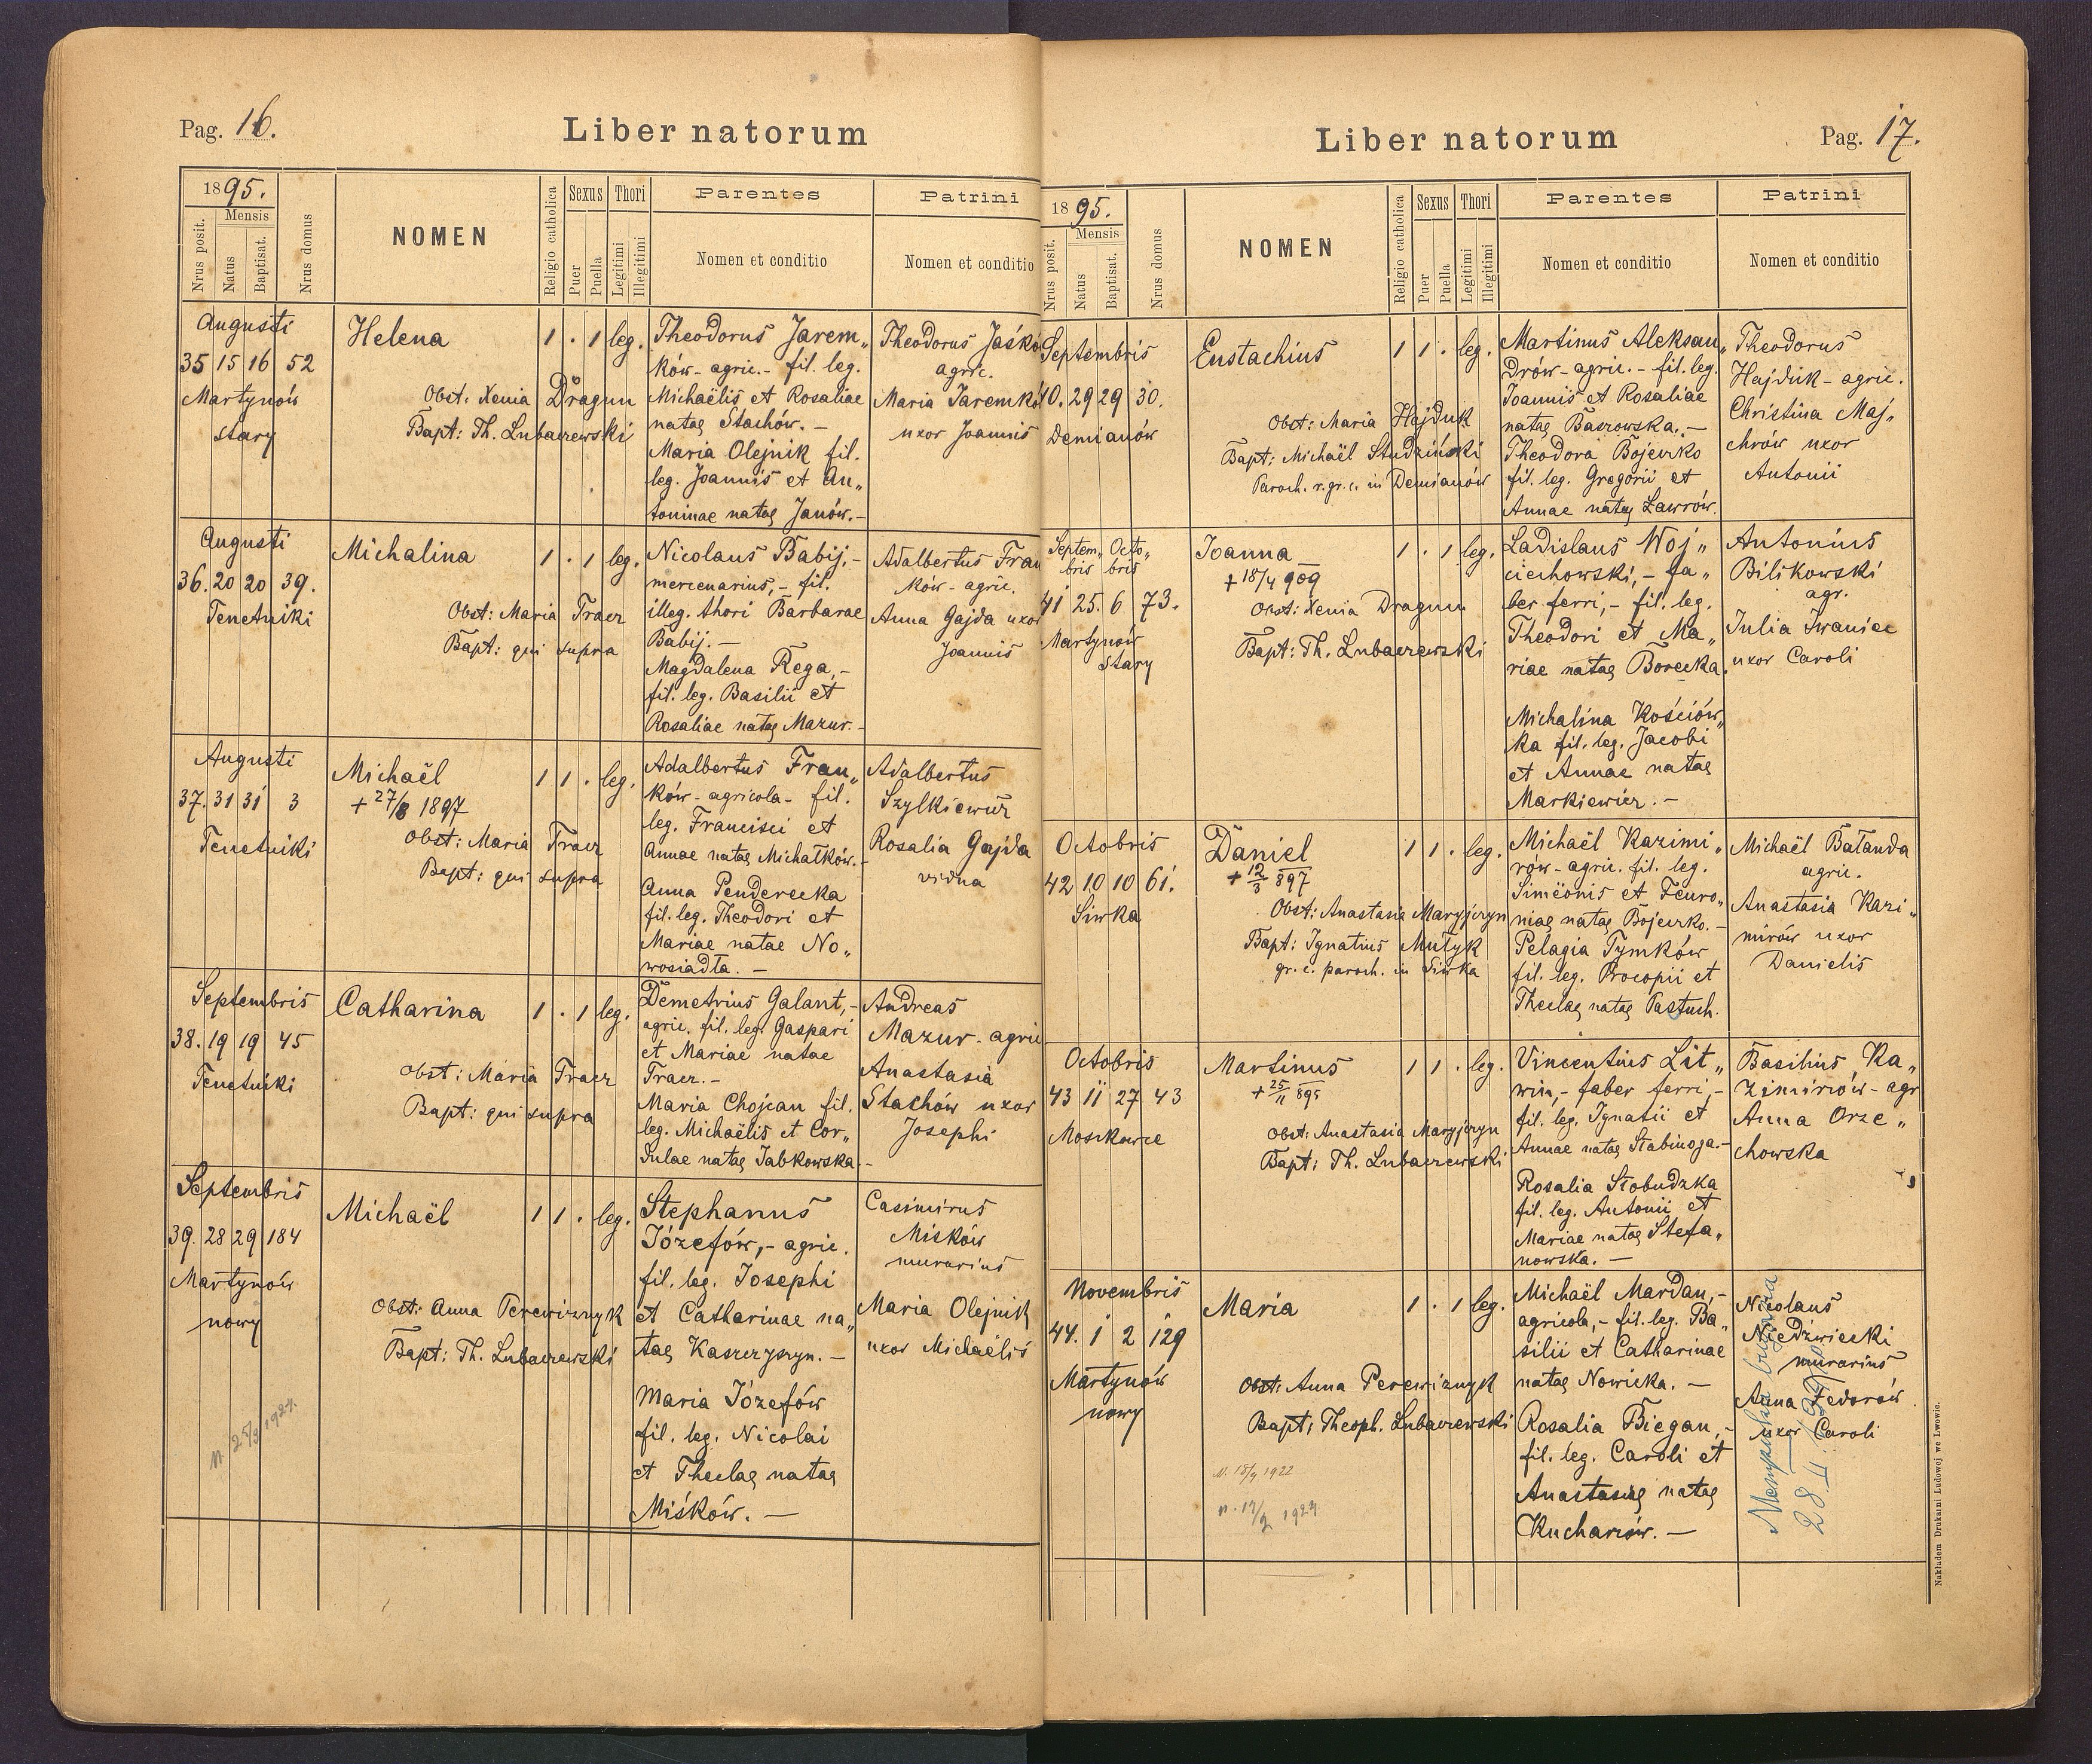 Pag. 16.
Liber natorum
1895.
Nrus posit.
Mensis
Natus
Baptisat.
Nrus domus
NOMEN
Religio catholica
Sexus
Puer
Puella
Thori
Legitimi
Illegitimi
Parentes
Nomen et conditio
Patrini
Nomen et conditio
Augusti
35 15 16 52
Martynów
stary
Helena
Obst: Xenia Dragun
Bapt: Th. Lubaczewski
1 . 1 leg.
Theodorus Jarem„
ków - agric. - fil. leg.
Michaëlis et Rosaliae
natae Stachów. -
Maria Olejnik fil.
leg. Joannis et An„
toninae natae Janów. -
Theodorus Jaśkó
agric.
Maria Jaremkó
uxor Joannis
Augusti
36. 20 20 39.
Tenetniki
Michalina
Obst: Maria Tracz
Bapt: qui supra
1 . 1 leg.
Nicolaus Babij, -
mercenarius, - fil.
illeg. thori Barbarae
Babij. -
Magdalena Rega, -
fil. leg. Basilii et
Rosaliae natae Mazur. -
Adalbertus Fran
ków - agric.
Anna Gajda uxor
Joannis
Augusti
37. 31 31 3
Tenetniki
Michaël
+ 27/8 1897
Obst: Maria Tracz
Bapt: qui supra
1 1 . leg.
Adalbertus Fran„
ków - agricola - fil.
leg. Francisci et
Annae natae Michałków. -
Anna Penderecka
fil. leg. Theodori et
Mariae natae No„
wosiadła. -
Adalbertus
Szylkiewicz
Rosalia Gajda
vidua
Septembris
38. 19 19 45
Tenetniki
Catharina
Obst: Maria Tracz
Bapt: qui supra
1 . 1 leg.
Demetrius Galant, -
agric. fil. leg. Gaspari
et Mariae natae
Tracz. -
Maria Chojcan fil.
leg. Michaëlis et Cor„
dulae natae Jabkowska. -
Andreas
Mazur - agric
Anastasia
Stachów uxor
Josephi
Septembris
39. 28 29 184
Martynów
nowy
Michaël
Obst: Anna Perewiznyk
Bapt: Th. Lubaczewski
1 1 . leg.
Stephanus
Józefów, - agric.
fil. leg. Josephi
et Catharinae na„
tae Kaszczyszyn. -
Maria Józefów
fil. leg. Nicolai
et Theclae natae
Miśków. -
Casimirus
Miśków
murarius
Maria Olejnik
uxor Michaëlis
Pag. 17.
Liber natorum
1895.
Nrus posit.
Mensis
Natus
Baptisat.
Nrus domus
NOMEN
Religio catholica
Sexus
Puer
Puella
Thori
Legitimi
Illegitimi
Parentes
Nomen et conditio
Patrini
Nomen et conditio
Septembris
40. 29 29 30.
Demianów
Eustachius
Obst: Maria Hajduk
Bapt: Michaël Studziński
Paroch. r. gr. c. in Demianów
1 1 . leg.
Martinus Aleksan„
drów - agric. - fil. leg.
Joannis et Rosaliae
natae Baszowska. -
Theodora Bojeczko
fil. leg. Gregorii et
Annae natae Ławrów.
Theodorus
Hajduk - agric.
Christina Maj„
chrów uxor
Antonii
Septem„ Octo„
bris bris
41 25. 6 73.
Martynów
stary
Joanna
+ 18/4 909
Obst: Xenia Dragun
Bapt: Th. Lubaczewski
1 . 1 leg.
Ladislaus Woj„
ciechowski, - fa„
ber ferri, - fil. leg.
Theodori et Ma„
riae natae Borecka.
Michalina Kościów„
ka fil. leg. Jacobi
et Annae natae
Markiewicz. -
Antonius
Bilikowski
agr.
Julia Iwaniec
uxor Caroli
Octobris
42 10 10 61.
Siwka
Daniel
+ 12/3 897
Obst: Anastasia Maryjczyn
Bapt: Ignatius Mułyk
gr. c. paroch. in Siwka
1 1 . leg.
Michaël Kazimi„
rów - agric. fil. leg.
Simëonis et Feuro„
niae natae Bojeczko. -
Pelagia Tymków
fil. leg. Procopii et
Theclae natae Pastuch.
Michaël Bałanda
agric.
Anastasia Kazi„
mirów uxor
Danielis
Octobris
43 11 27 43
Moszkowce
Martinus
+ 25/11 895
Obst: Anastasia Maryjczyn
Bapt: Th. Lubaczewski
1 1 . leg.
Vincentius Lit„
win, - faber ferri, -
fil. leg. Ignatii et
Annae natae Stabinoga. -
Rosalia Słobudzka
fil. leg. Antonii et
Mariae natae Stefa„
nowska. -
Basilius Ka„
zimirów - agr
Anna Orze„
chowska
Novembris
44. 1 2 129
Martynów
nowy
Maria
Obst: Anna Perewiznyk
Bapt: Theoph. Lubaczewski
1 . 1 leg.
Michaël Mardan, -
agricola, - fil. leg. Ba„
silii et Catharinae
natae Nowicka. -
Rosalia Biegan, -
fil. leg. Caroli et
Anastasiae natae
Kucharów. -
Nicolaus
Niedźwiecki
murarius
Anna Fedorów
uxor Caroli
Nakładem Drukarni Ludowej we Lwowie.